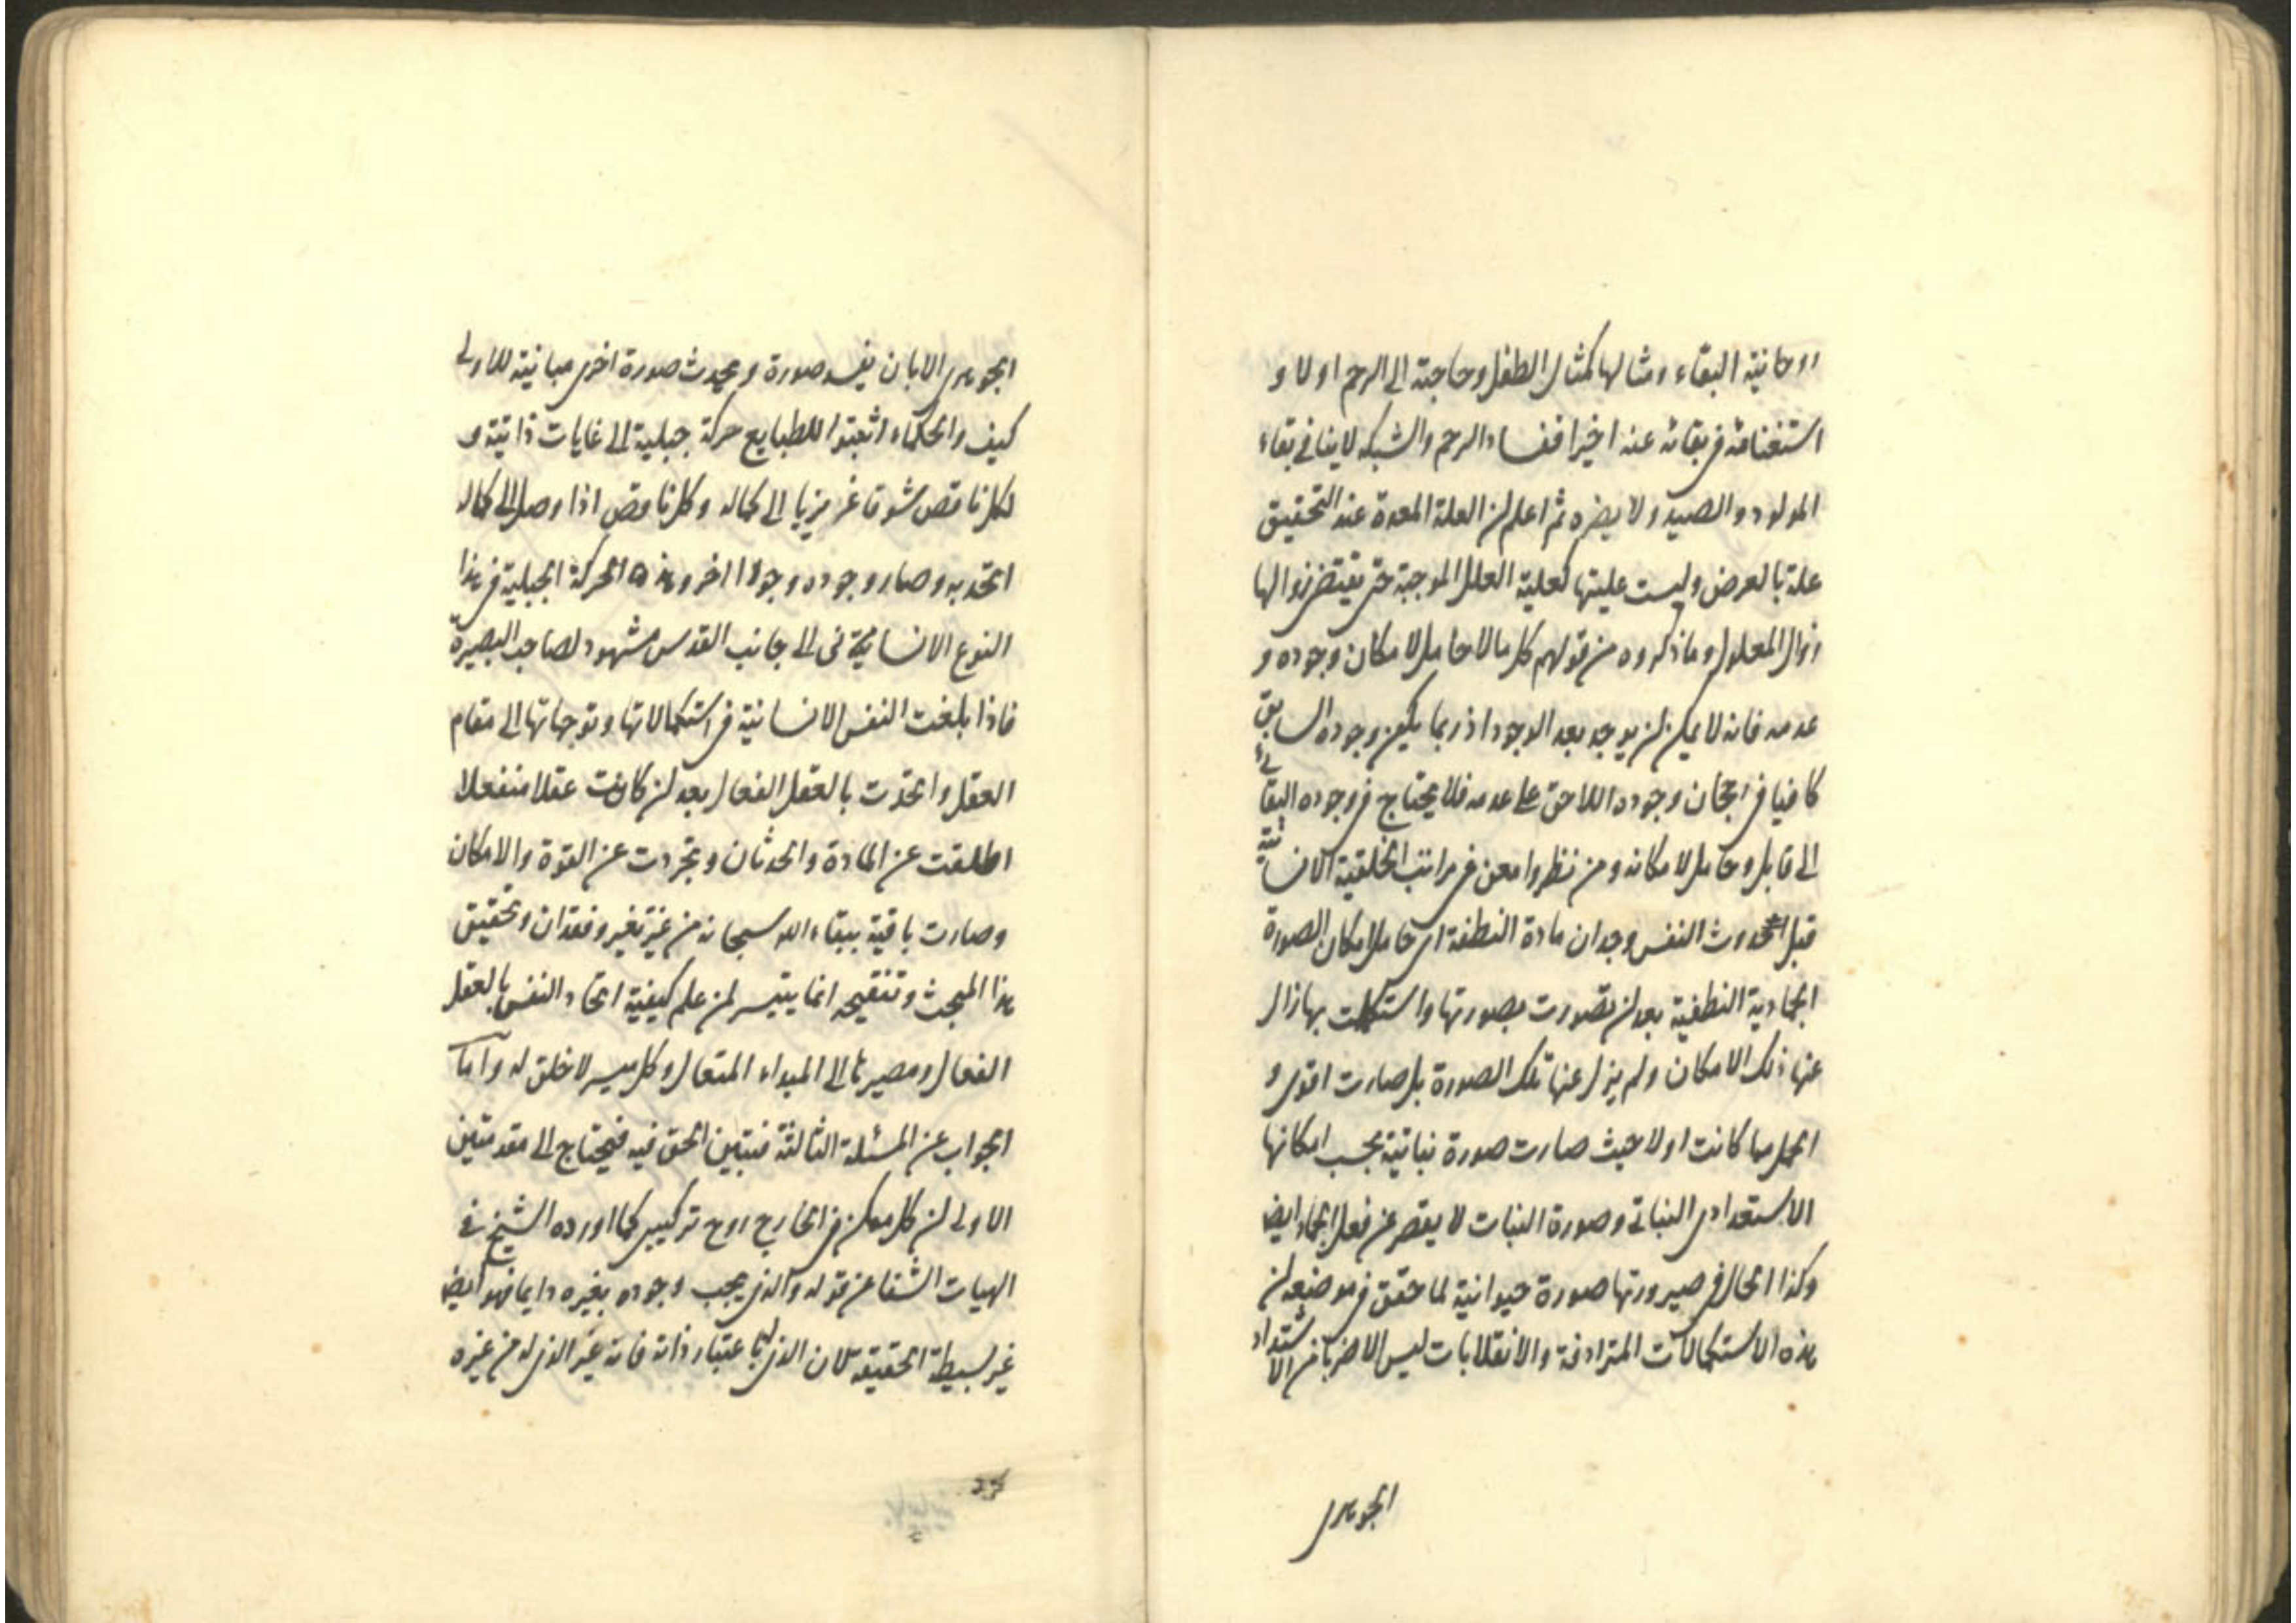 روحانية البقاء ومثالها كمثال الطفل وحاجته الى الرحم اولا و
استغنائه فى بقائه عنه اخيرا ففساد الرحم والشبكه لاينافى بقاء
المولود والصيد ولا يضره ثم اعلم ان العلة المعدة عند التحقيق
علة بالعرض وليست عليتها كعلية العلل الموجبة حتى يقتضى زوالها
زوال المعلول وما ذكروه من قولهم كل مالا حامل لامكان وجوده و
عدمه فانه لا يمكن ان يوجد بعد الوجود اذ ربما يكون وجوده السابق
كافيا فى رجحان وجوده اللاحق على عدمه فلا يحتاج فى وجوده البقائى
الى قابل وحامل لامكانه ومن نظر وامعن فى مراتب الخلقية الانسانية
قبل حدوث النفس وجد ان مادة النطفة اى حامل امكان الصورة
الجمادية النطفية بعد ان تصورت بصورتها واستكملت بها زال
عنها ذلك الامكان ولم يزل عنها تلك الصورة بل صارت اقوى و
اكمل مما كانت اولا حيث صارت صورة نباتية بحسب امكانها
الاستعدادى النباتى وصورة النبات لا يقصر عن فعل الجماد ايضا
وكذا الحال فى صيرورتها صورة حيوانية لما حقق فى موضعه ان
هذه الاستكمالات المترادفة والانقلابات ليس الا ضربا من الاشتداد
الجوهرى
الجوهرى الا بان يفسد صورة ويحدث صورة اخرى مباينة للاولى
كيف والحكماء اثبتوا للطبايع حركة جبلية الى غايات ذاتية و
لكل ناقص شوقا غريزيا الى كماله وكل ناقص اذا وصل الى كماله
اتحد به وصار وجوده وجودا اخر وهذه الحركة الجبلية فى هذا
النوع الانسانى الى جانب القدس مشهود لصاحب البصيرة
فاذا بلغت النفس الانسانية فى استكمالاتها وتوجهاتها الى مقام
العقل واتحدت بالعقل الفعال بعد ان كانت عقلا منفعلا
اطلقت عن المادة والحدثان وتجردت عن القوة والامكان
وصارت باقية ببقاء الله سبحانه من غير تغير وفقدان وتحقيق
هذا المبحث وتنقيحه انما يتيسر لمن علم كيفية اتحاد النفس بالعقل
الفعال ومصيرها الى المبداء المتعال وكل ميسر لا خلق له واما
الجواب عن المسئلة الثالثة فتبيين الحق فيه فيحتاج الى مقدمتين
الاولى ان كل ممكن فى الخارج زوج تركيبى كما اورده الشيخ فى
الهيات الشفا عن قوله والذى يجب وجوده بغيره دايما فهو ايضا
غير بسيطة الحقيقة لان الذى له باعتبار ذاته فانه غير الذى له من غيره